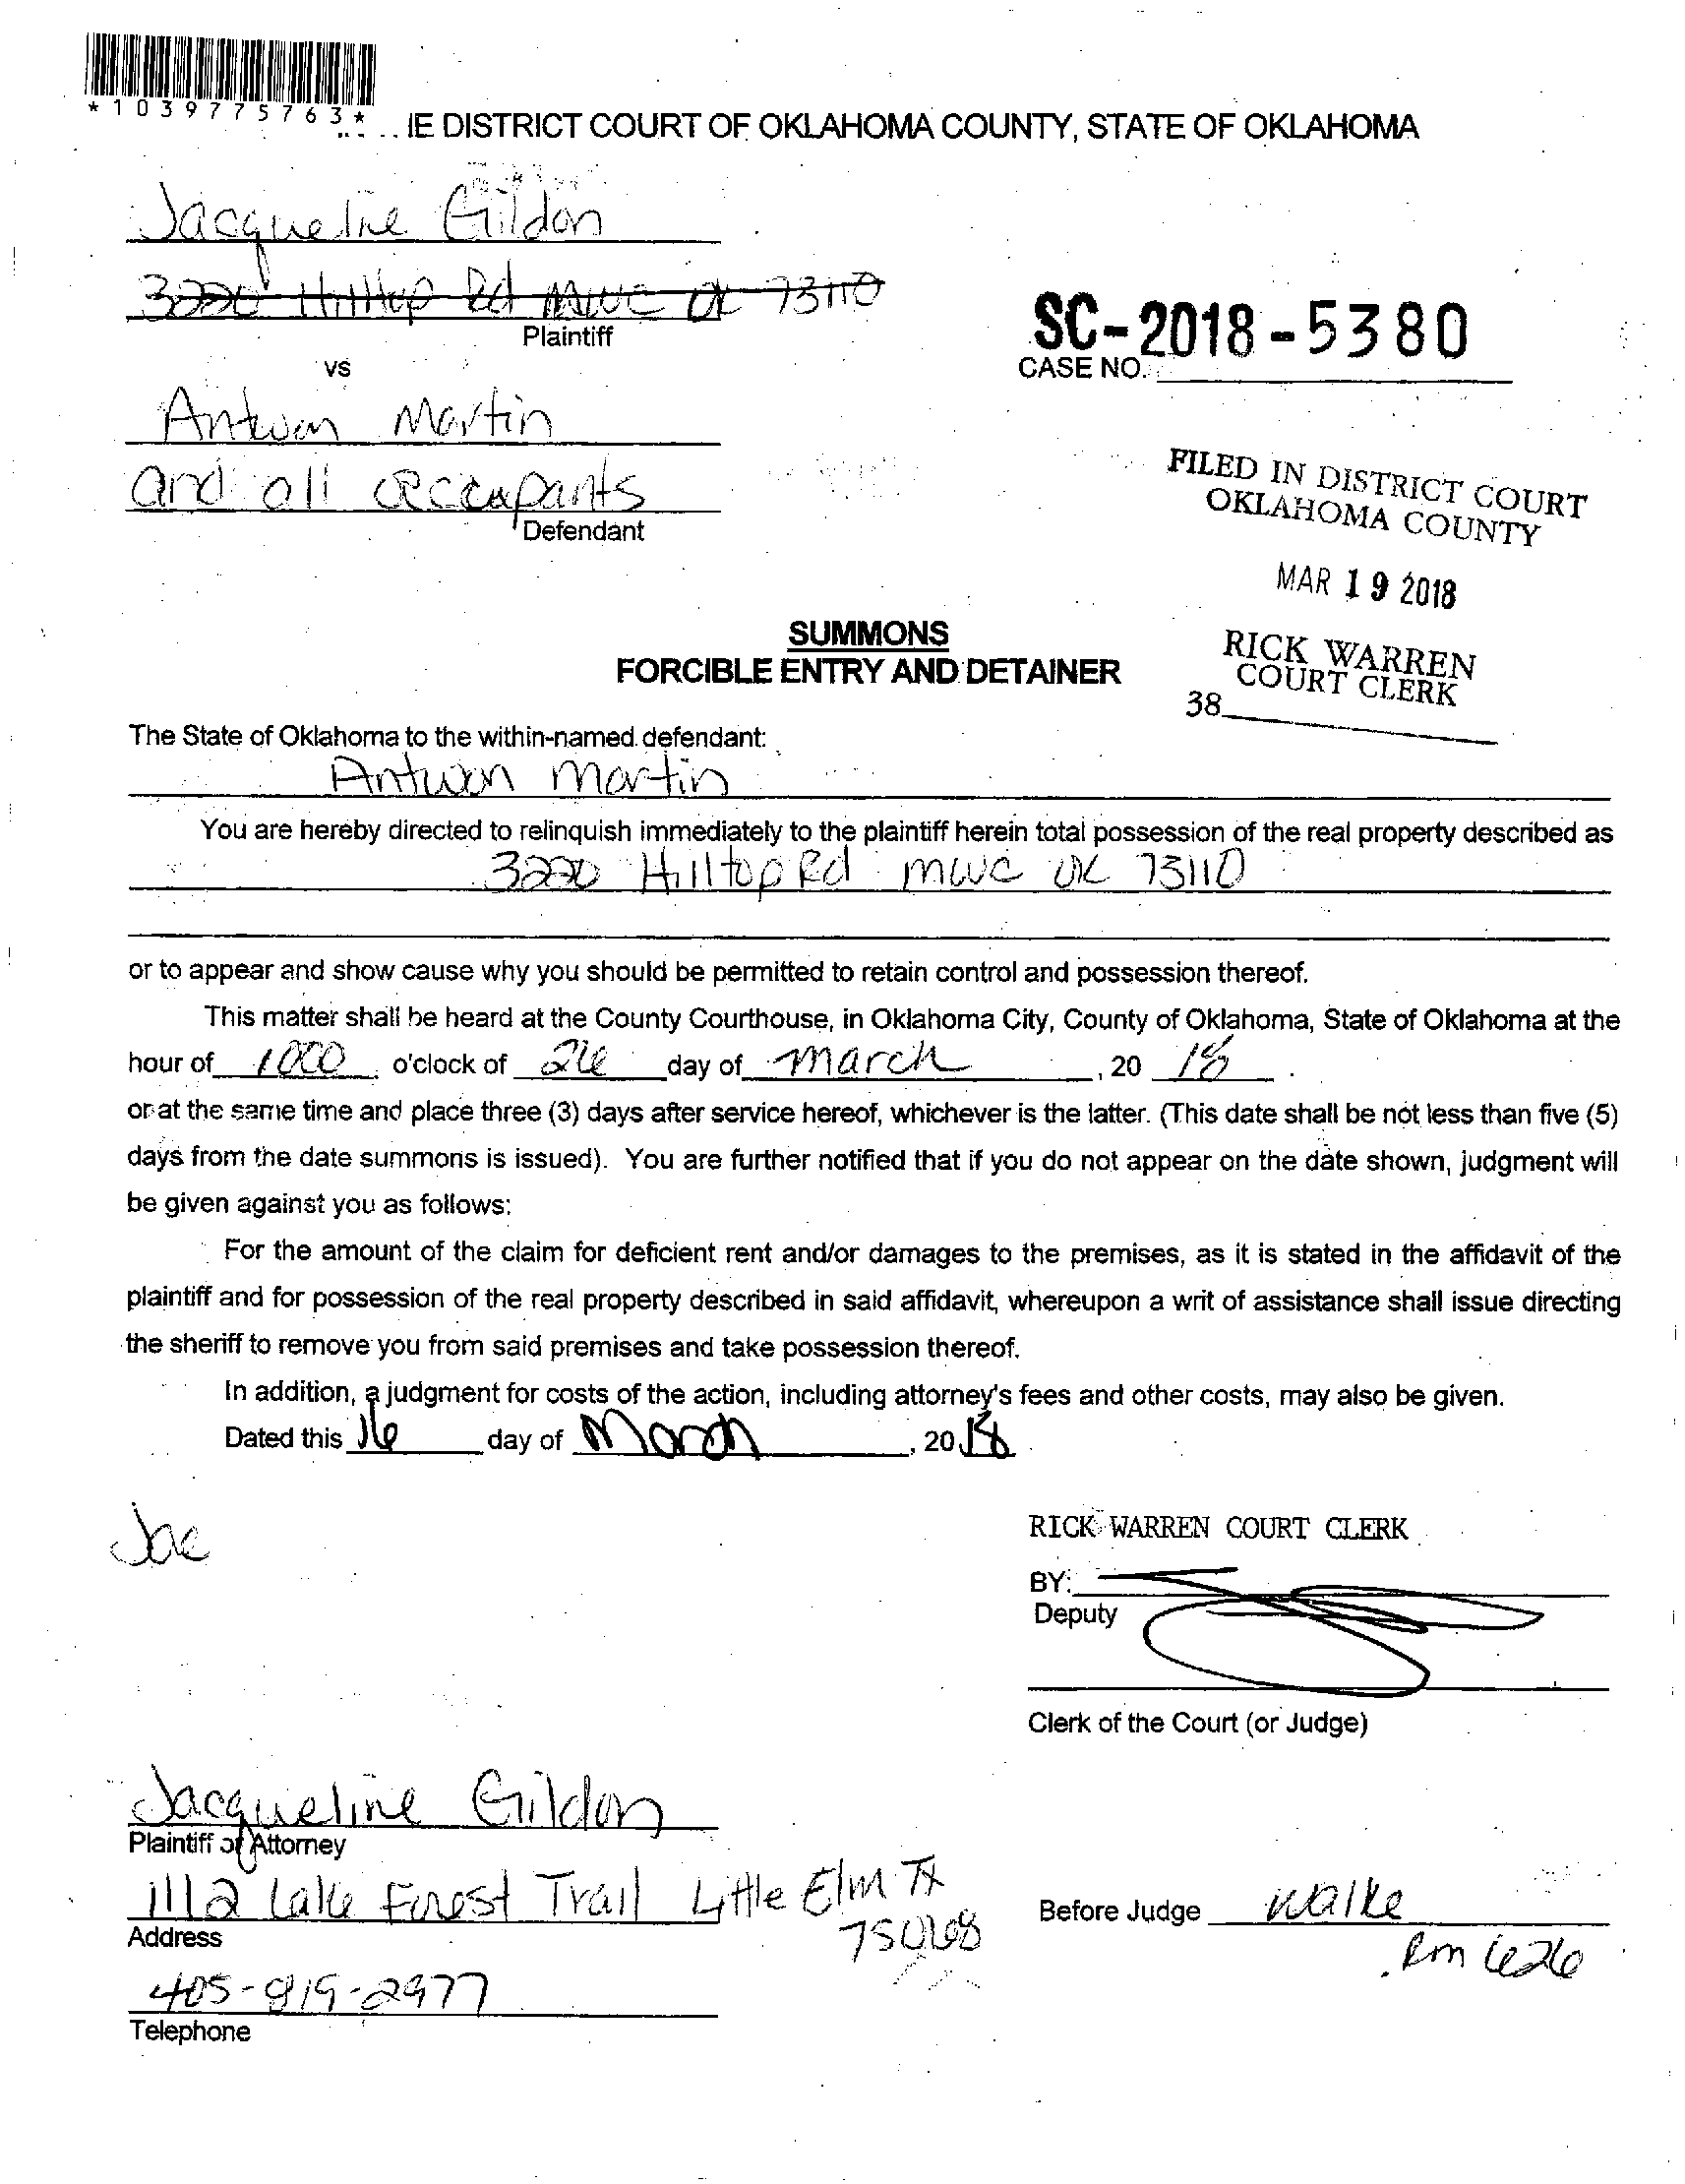 *1039775763*
IE DISTRICT COURT OF OKLAHOMA COUNTY, STATE OF OKLAHOMA
Jacqueline Gildon
3220 Hilltop Rd MWC OK 73110
Plaintiff
vs
SC-2018-5380
CASE NO.
Antwon Martin
and all occupants
Defendant
FILED IN DISTRICT COURT
OKLAHOMA COUNTY
MAR 19 2018
RICK WARREN
COURT CLERK
38
SUMMONS
FORCIBLE ENTRY AND DETAINER
The State of Oklahoma to the within-named defendant:
Antwon Martin
You are hereby directed to relinquish immediately to the plaintiff herein total possession of the real property described as
3220 Hilltop Rd MWC OK 73110
or to appear and show cause why you should be permitted to retain control and possession thereof.
This matter shall be heard at the County Courthouse, in Oklahoma City, County of Oklahoma, State of Oklahoma at the
hour of 1000 o'clock of 26 day of March, 20 18.
or at the same time and place three (3) days after service hereof, whichever is the latter. (This date shall be not less than five (5)
days from the date summons is issued). You are further notified that if you do not appear on the date shown, judgment will
be given against you as follows:
For the amount of the claim for deficient rent and/or damages to the premises, as it is stated in the affidavit of the
plaintiff and for possession of the real property described in said affidavit, whereupon a writ of assistance shall issue directing
the sheriff to remove you from said premises and take possession thereof.
In addition, a judgment for costs of the action, including attorney's fees and other costs, may also be given.
Dated this 16 day of March, 2018.
RICK WARREN COURT CLERK
BY:
Deputy
Clerk of the Court (or Judge)
Jacqueline Gildon
Plaintiff or Attorney
1112 Lake Forest Trail Little Elm TX
75068
Address
405-819-2977
Telephone
Before Judge Walke
Rm 626